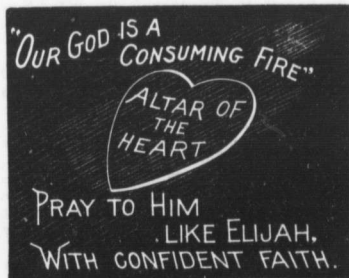 "OUR GOD IS A
CONSUMING FIRE"
ALTAR OF
THE
HEART
PRAY TO HIM
LIKE ELIJAH,
WITH CONFIDENT FAITH.